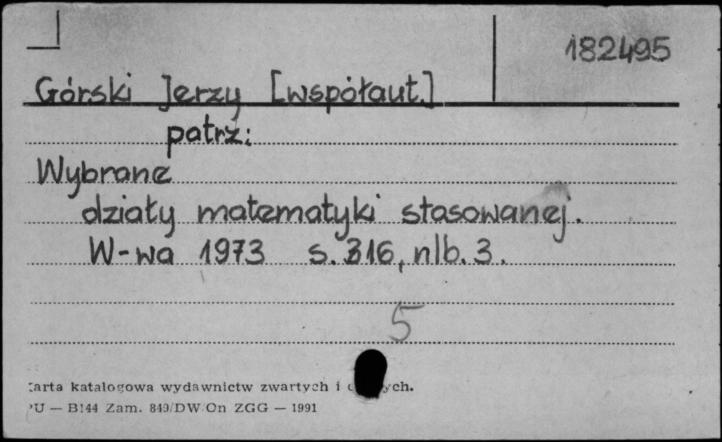 182495
Górski Jerzy [współaut.]
patrz:
Wybrane
działy matematyki stasowanej.
W-wa 1973 s. 316, nlb. 3.
5
arta katalogowa wydawnictw zwartych i ych.
U — B144 Zam. 849/DW/On ZGG — 1991